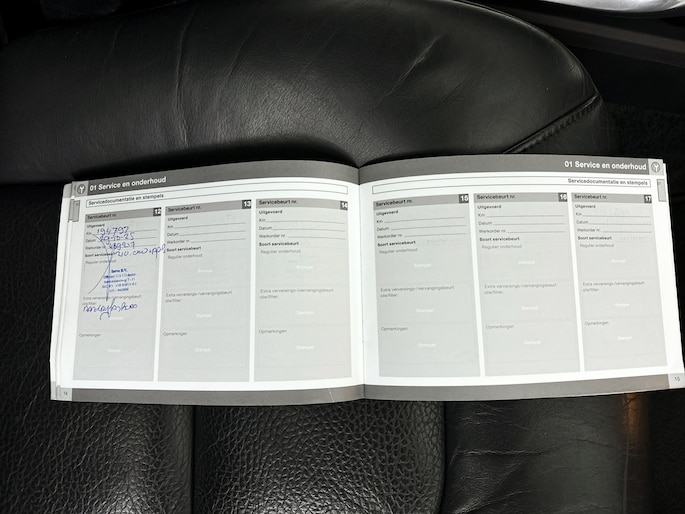 01 Service en onderhoud
Servicedocumentatie en stempels
Servicebeurt nr. 12
Uitgevoerd
Km
Datum
Werkorder nr.
Soort servicebeurt
Regulier onderhoud
Extra verversings-/vervangingsbeurt
olie/filter
Opmerkingen
Stempel
Servicebeurt nr. 13
Uitgevoerd
Km
Datum
Werkorder nr.
Soort servicebeurt
Regulier onderhoud
Stempel
Extra verversings-/vervangingsbeurt
olie/filter
Stempel
Opmerkingen
Stempel
Servicebeurt nr. 14
Uitgevoerd
Km
Datum
Werkorder nr.
Soort servicebeurt
Regulier onderhoud
Stempel
Extra verversings-/vervangingsbeurt
olie/filter
Stempel
Opmerkingen
Stempel
14
01 Service en onderhoud
Servicedocumentatie en stempels
Servicebeurt nr. 15
Uitgevoerd
Km
Datum
Werkorder nr.
Soort servicebeurt
Regulier onderhoud
Stempel
Extra verversings-/vervangingsbeurt
olie/filter
Stempel
Opmerkingen
Stempel
Servicebeurt nr. 16
Uitgevoerd
Km
Datum
Werkorder nr.
Soort servicebeurt
Regulier onderhoud
Stempel
Extra verversings-/vervangingsbeurt
olie/filter
Stempel
Opmerkingen
Stempel
Servicebeurt nr. 17
Uitgevoerd
Km
Datum
Werkorder nr.
Soort servicebeurt
Regulier onderhoud
Stempel
Extra verversings-/vervangingsbeurt
olie/filter
Stempel
Opmerkingen
Stempel
15